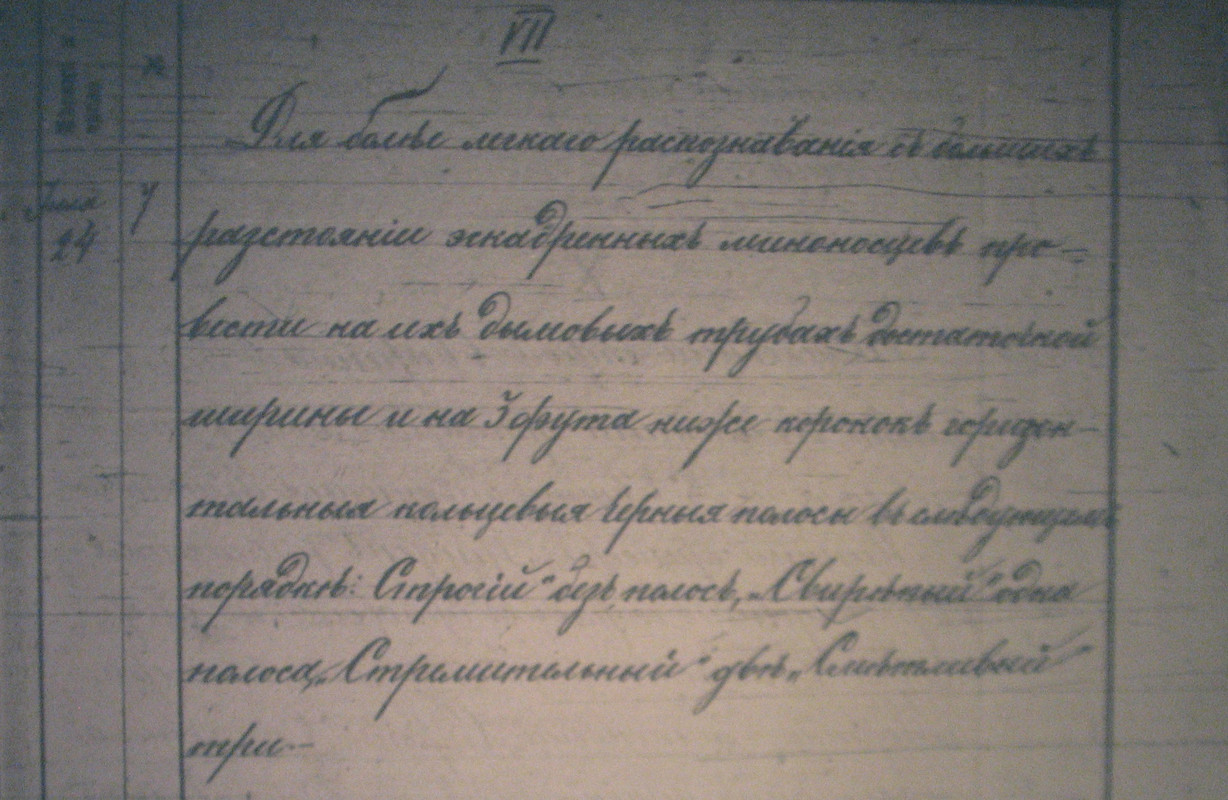 VII
№
Для болѣе легкаго распознаванія съ большихъ
Іюля 7
24
разстояніи эскадренныхъ миноносцевъ про-
вести на ихъ дымовыхъ трубахъ достаточной
ширины и на 3 фута ниже коронокъ горизон-
тальныя кольцевыя черныя полосы въ слѣдующемъ
порядкѣ: Строгій" безъ полосъ, „Свирѣпый" одна
полоса, „Стремительный" двѣ, „Смѣтливый"
три.—